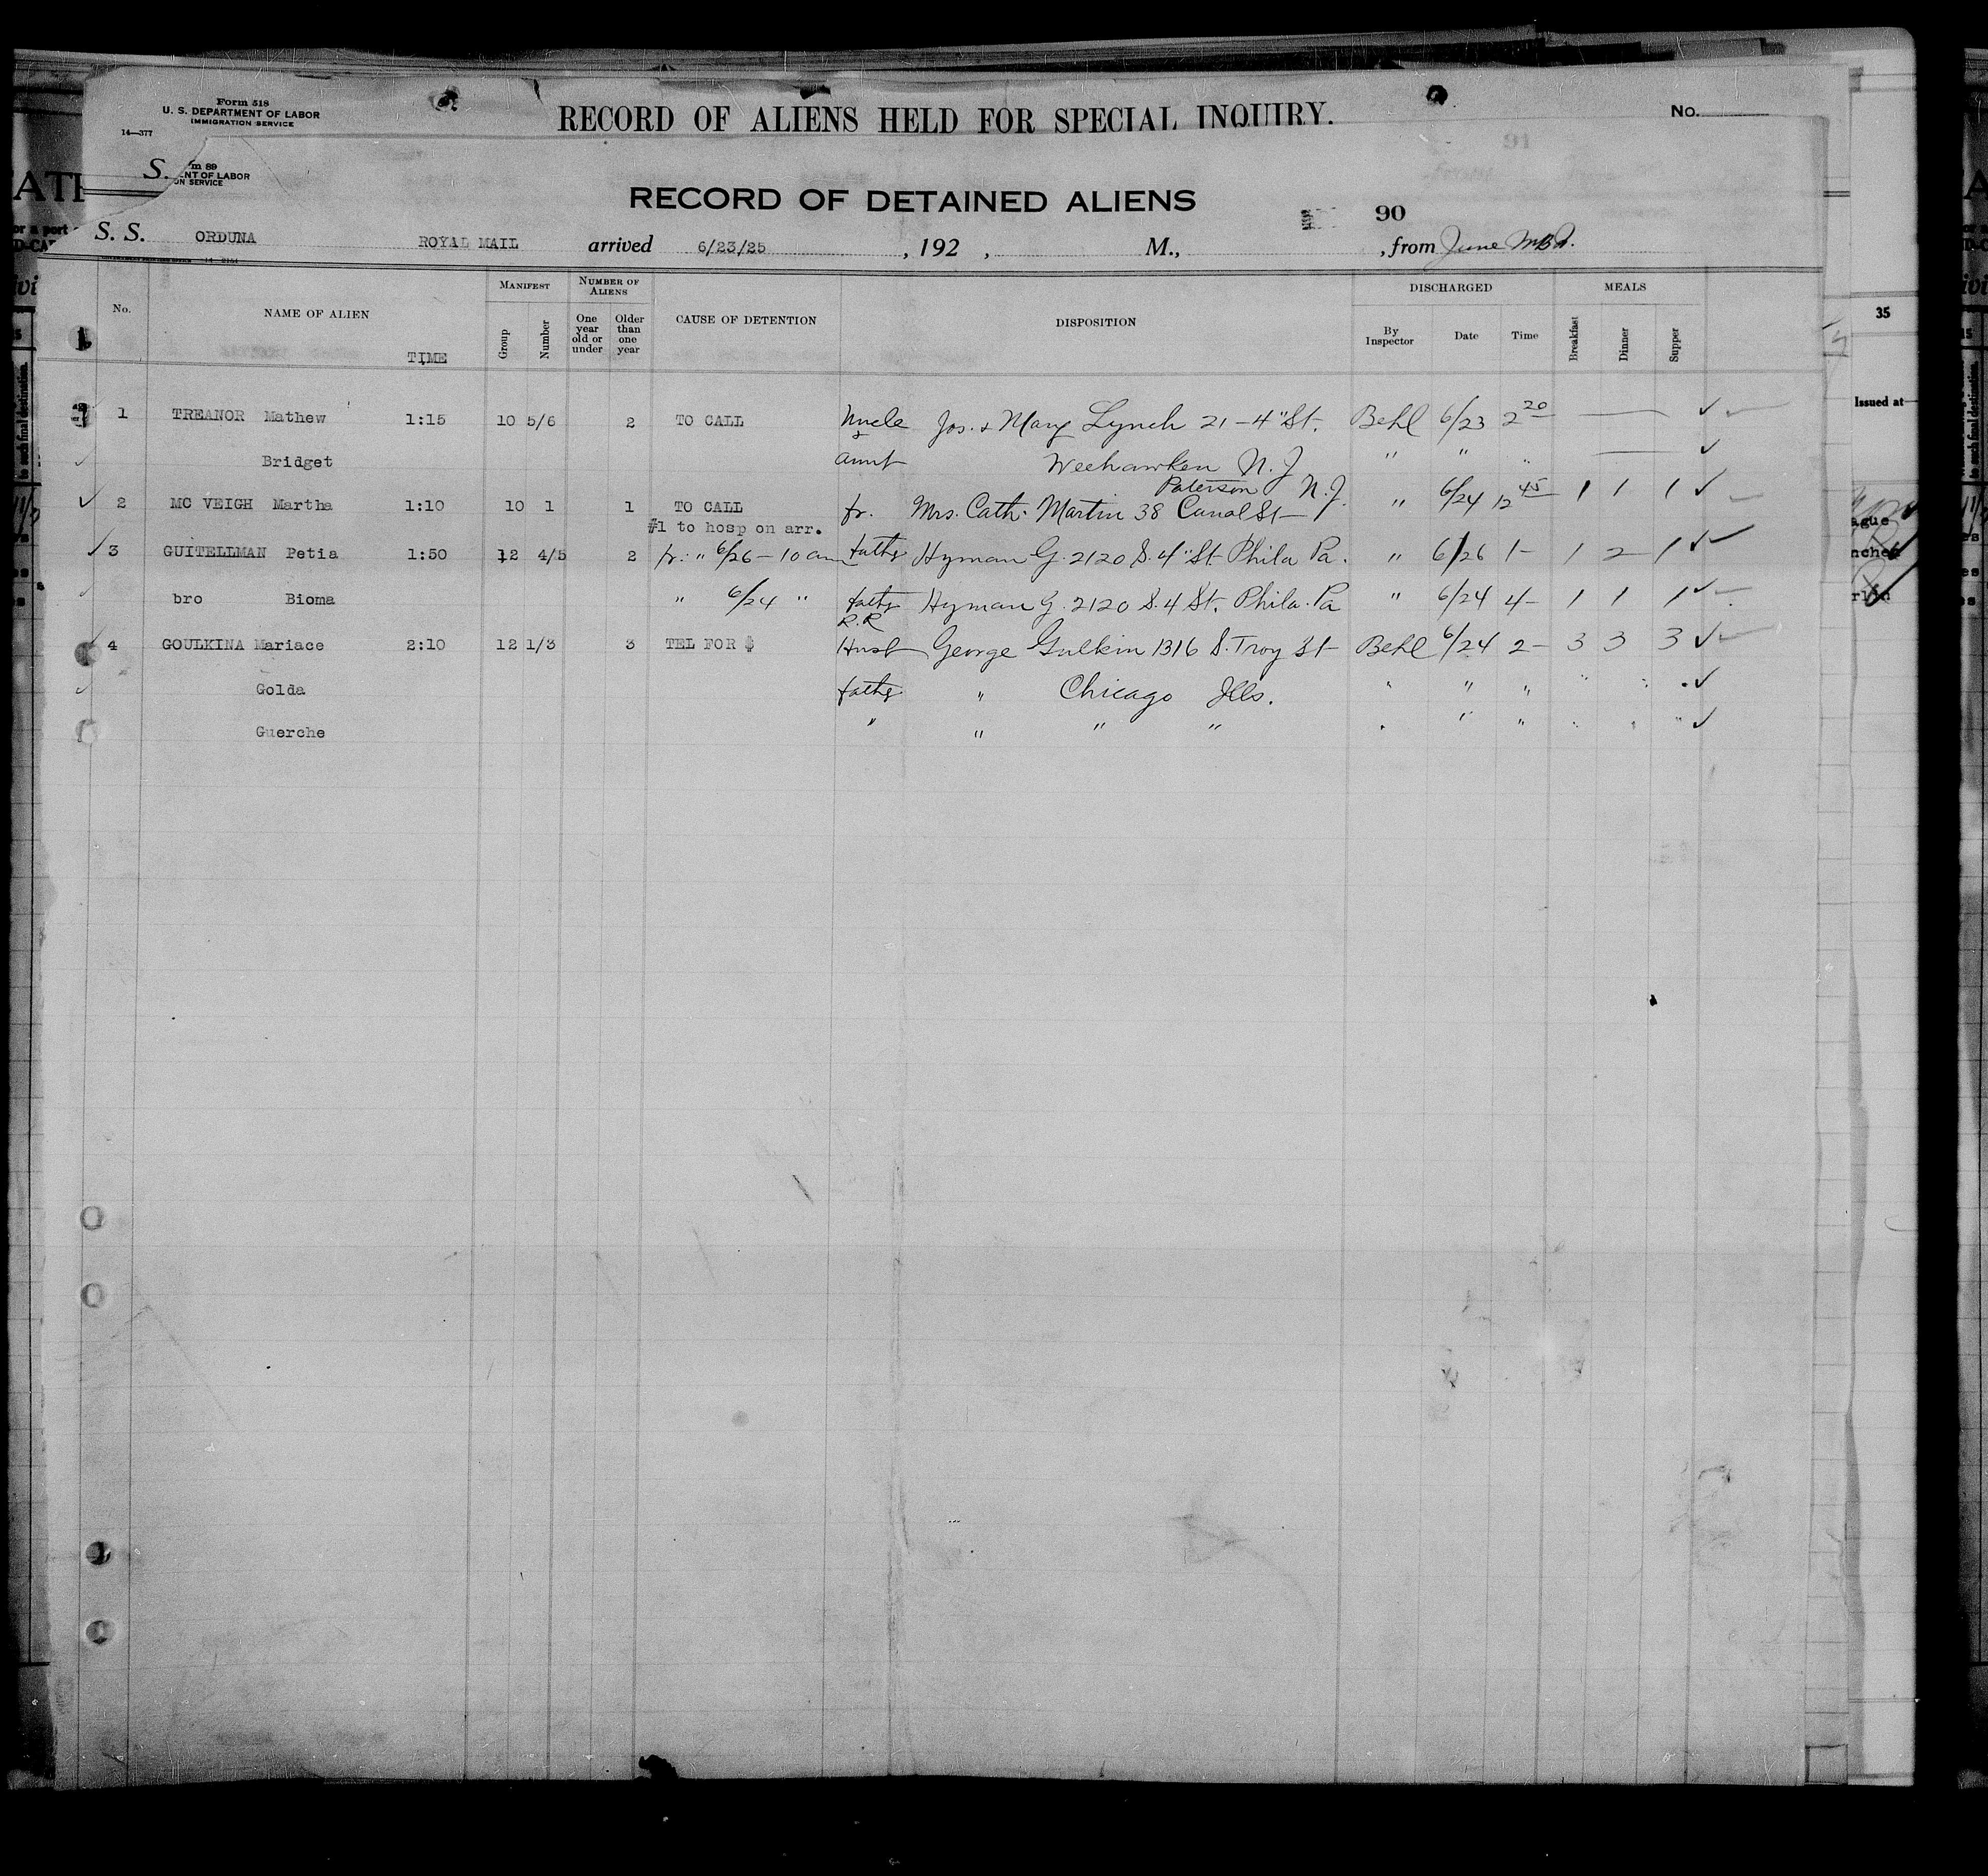 Form 518
U. S. DEPARTMENT OF LABOR
IMMIGRATION SERVICE
14—377
RECORD OF ALIENS HELD FOR SPECIAL INQUIRY.
No.
S.
m 89
ENT OF LABOR
ON SERVICE
RECORD OF DETAINED ALIENS
90
S. S. ORDUNA ROYAL MAIL arrived 6/23/25 , 192 , M., , from June
No. NAME OF ALIEN TIME MANIFEST Group Number NUMBER OF ALIENS One year old or under Older than one year CAUSE OF DETENTION DISPOSITION DISCHARGED By Inspector Date Time MEALS Breakfast Dinner Supper
1 TREANOR Mathew 1:15 10 5/6 2 TO CALL Uncle + Jos. + Mary Lynch 21 - 4" St. Behl 6/23 2 20 — ✓
Bridget aunt Weehawken N. J " " " — ✓
Paterson N. J.
2 MC VEIGH Martha 1:10 10 1 1 TO CALL fr. Mrs. Cath. Martin 38 Canal St " 6/24 12 45 1 1 1 ✓
#1 to hosp on arr.
3 GUITELLMAN Petia 1:50 12 4/5 2 " 6/26 - 10 am fathr Hyman G. 2120 S. 4" St Phila Pa. " 6/26 1- 1 2 1 ✓
bro Bioma " 6/24 " fathr Hyman G. 2120 S. 4 St. Phila. Pa " 6/24 4- 1 1 1 ✓
R.R
4 GOULKINA Mariace 2:10 12 1/3 3 TEL FOR $ Husb George Gulkin 1316 S. Troy St Behl 6/24 2- 3 3 3 ✓
Golda fathr " Chicago Ills. " " " " " " ✓
Guerche " " " " " " " " " " ✓
35
Issued at